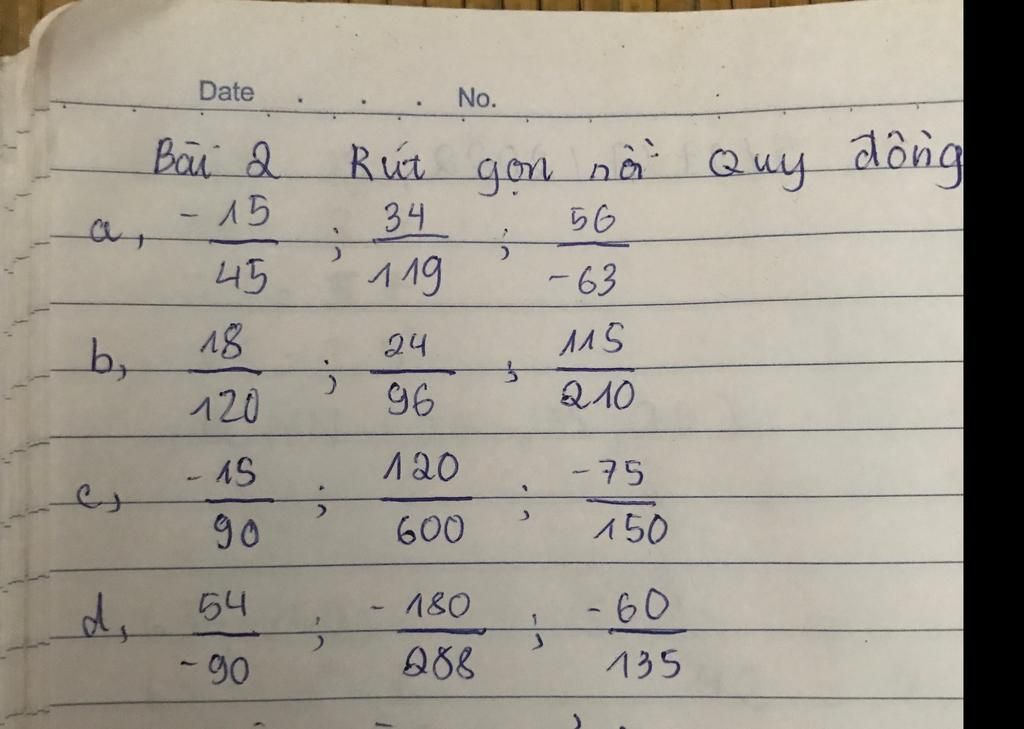 Date . . . No.
Bài 2 Rút gọn rồi Quy đồng
a, -15/45 ; 34/119 ; 56/-63
b, 18/120 ; 24/96 ; 115/210
c, -15/90 ; 120/600 ; -75/150
d, 54/-90 ; -180/288 ; -60/135